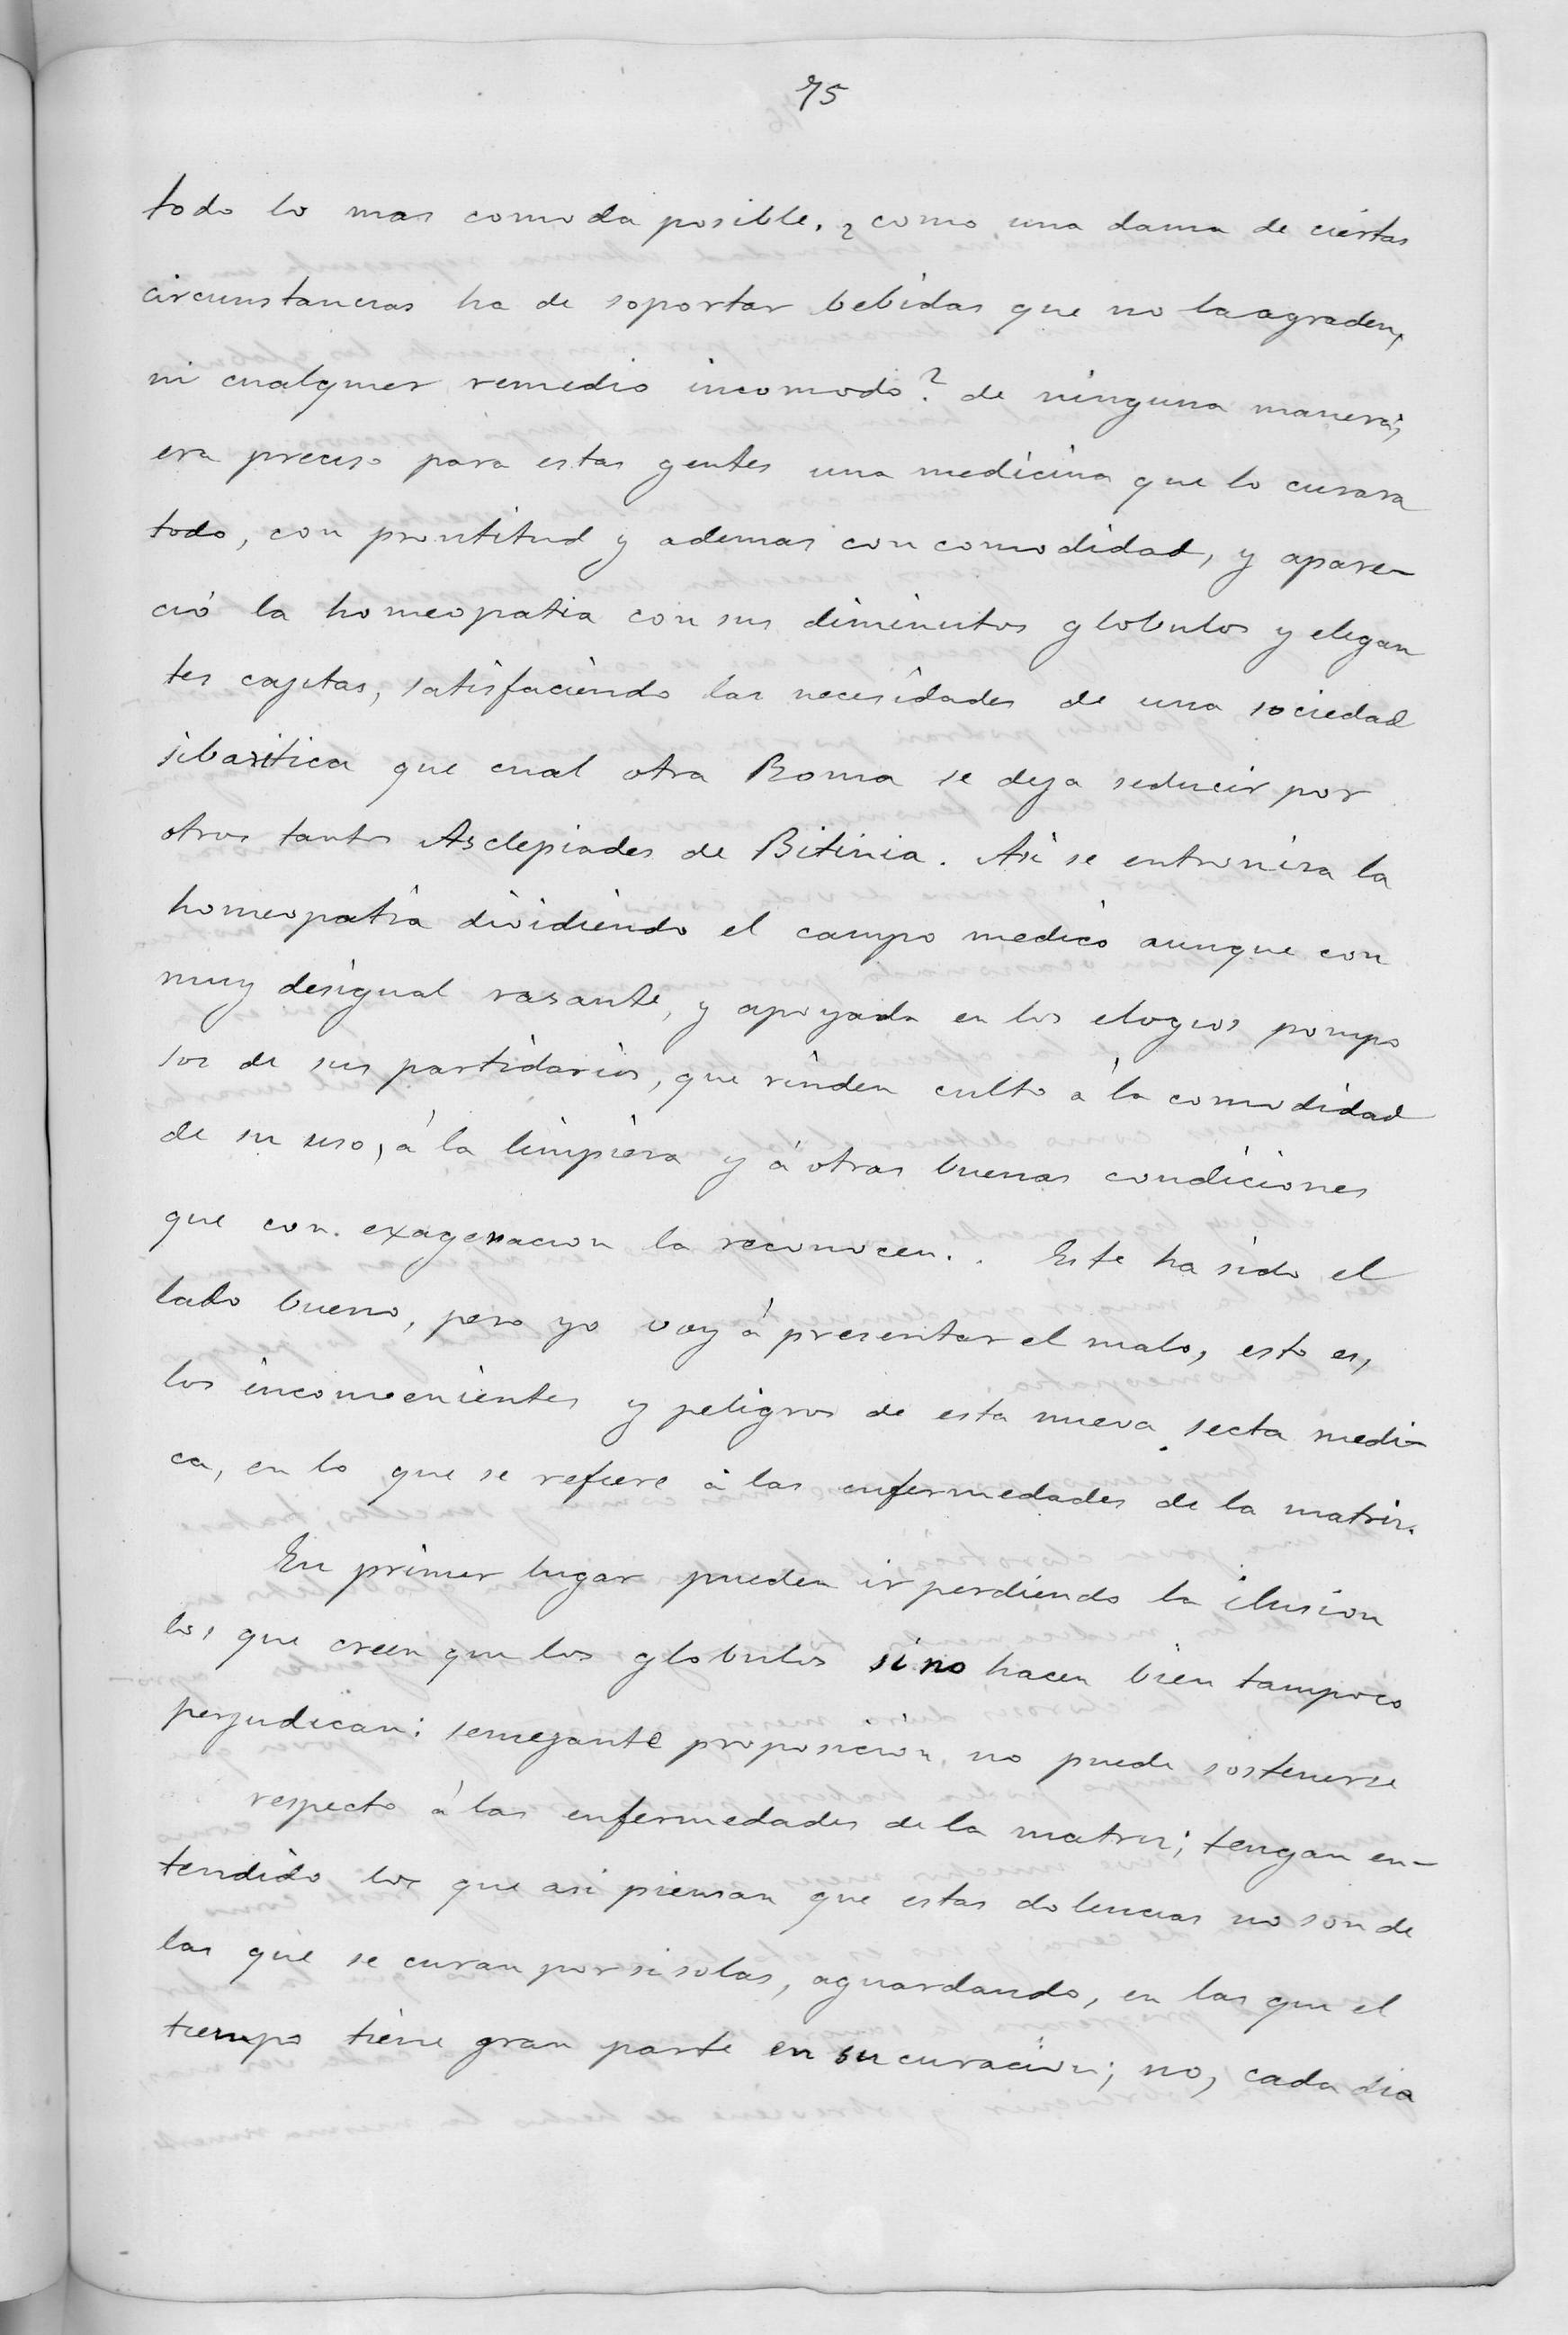 75
todo lo mas comoda posible. ¿como una dama de ciertas
circunstancias ha de soportar bebidas que no la agraden,
ni cualquier remedio incomodo? de ninguna manera;
era preciso para estas gentes una medicina que lo curara
todo, con prontitud y ademas con comodidad, y apare-
ció la homeopatia con sus diminutos globulos y elegan
tes cajitas, satisfaciendo las necesidades de una sociedad
sibaritica que cual otra Roma se deja seducir por
otros tantos Asclepiades de Bitinia. Asi se entroniza la
homeopatia dividiendo el campo medico aunque con
muy desigual rasante, y apoyada en los elogios pompo
sos de sus partidarios, que rinden culto á la comodidad
de su uso, á la limpieza y á otras buenas condiciones
que con exageracion la reconocen. Este ha sido el
lado bueno, pero yo voy á presentar el malo, esto es,
los inconvenientes y peligros de esta nueva secta medi-
ca, en lo que se refiere á las enfermedades de la matriz.
En primer lugar pueden ir perdiendo la ilusion
los que creen que los globulos si no hacen bien tampoco
perjudican: semejante proposicion no puede sostenerse
respecto á las enfermedades de la matriz; tengan en-
tendido los que asi piensan que estas dolencias no son de
las que se curan por si solas, aguardando, en las que el
tiempo tiene gran parte en su curacion; no, cada dia